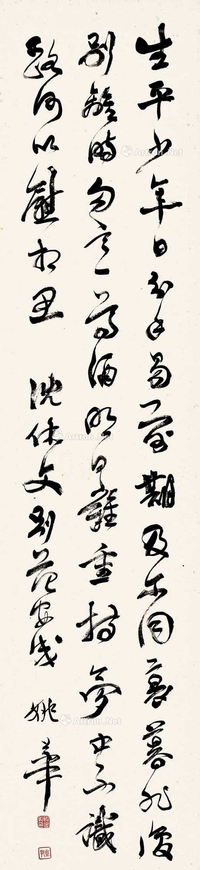 生平少年日分手易前期及尔同衰暮非复
别离时勿言一尊酒明日难重持梦中不识
路何以慰相思 沈休文别范安成 姚华